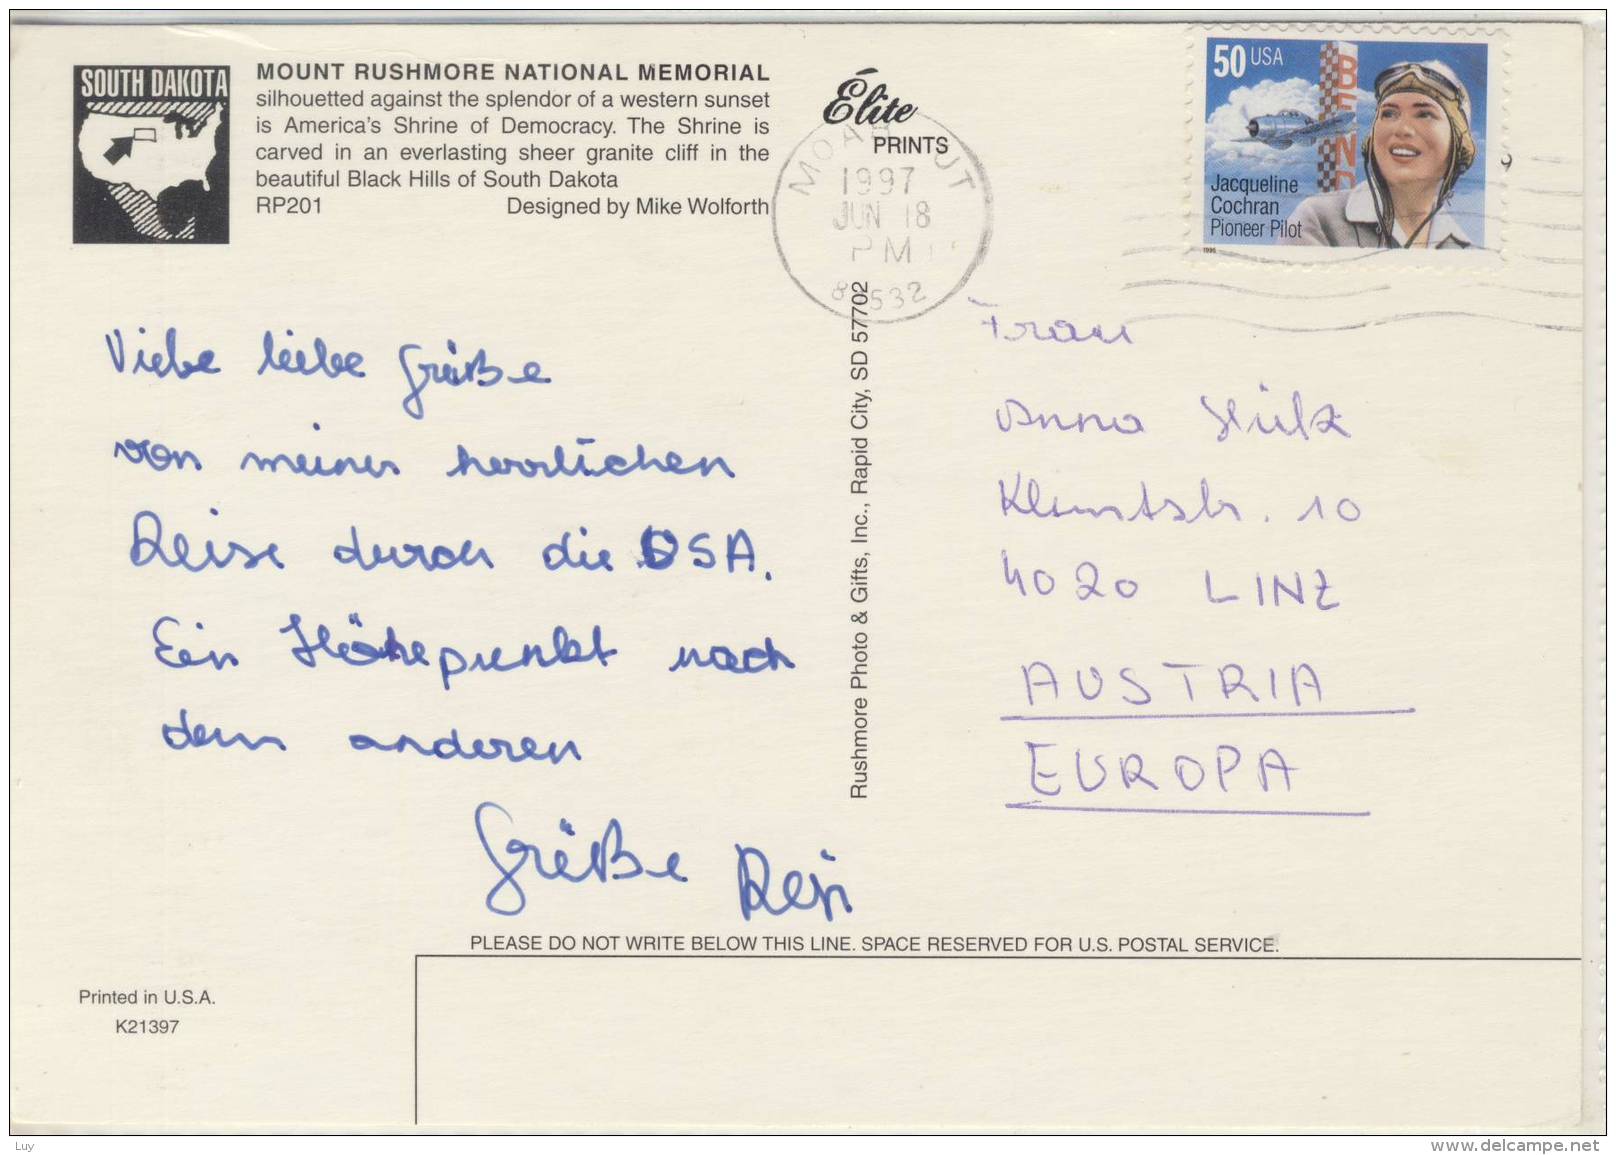 SOUTH DAKOTA
MOUNT RUSHMORE NATIONAL MEMORIAL
silhouetted against the splendor of a western sunset
is America's Shrine of Democracy. The Shrine is
carved in an everlasting sheer granite cliff in the
beautiful Black Hills of South Dakota
RP201 Designed by Mike Wolforth
Élite
PRINTS
MOAB UT
1997
JUN 18
PM
84532
50 USA
BEND
Jacqueline
Cochran
Pioneer Pilot
1996
Viele liebe Grüße
von meiner herrlichen
Reise durch die USA.
Ein Höhepunkt nach
dem anderen
Grüße Resi
Rushmore Photo & Gifts, Inc., Rapid City, SD 57702
Frau
Anna
Klimtstr. 10
4020 LINZ
AUSTRIA
EUROPA
PLEASE DO NOT WRITE BELOW THIS LINE. SPACE RESERVED FOR U.S. POSTAL SERVICE.
Printed in U.S.A.
K21397
Luy
www.delcampe.net